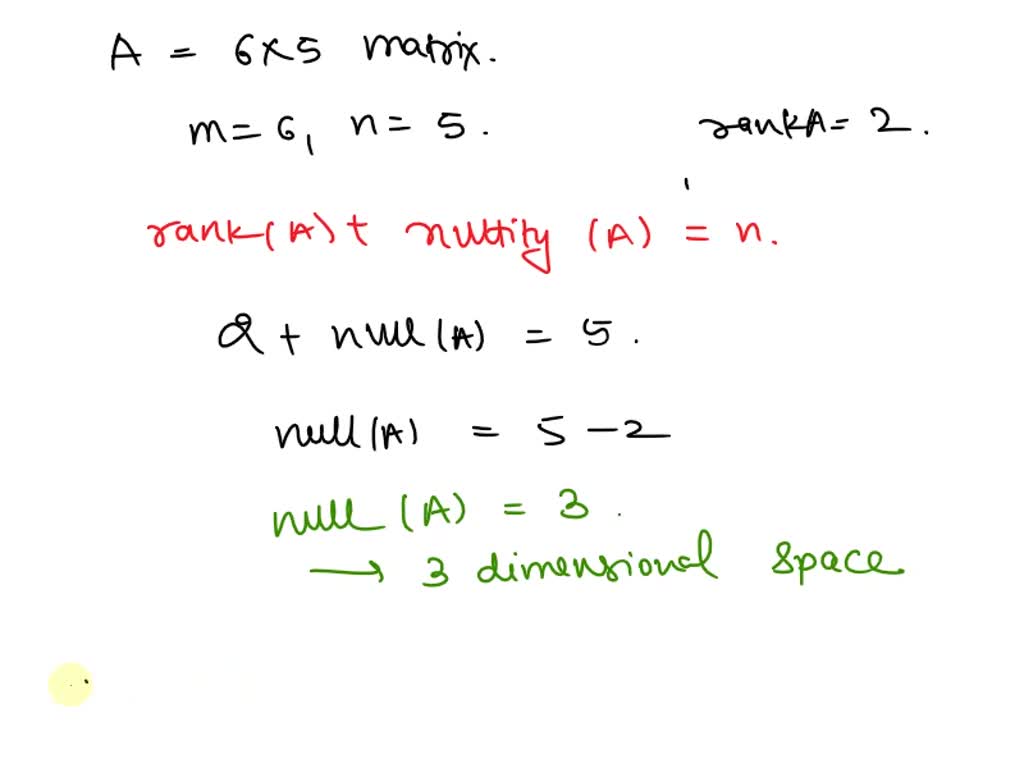 A = 6×5 matrix.
m = 6, n = 5. rank A = 2.
rank(A) + nullity (A) = n.
2 + null(A) = 5.
null(A) = 5 - 2
null (A) = 3.
→ 3 dimensional space